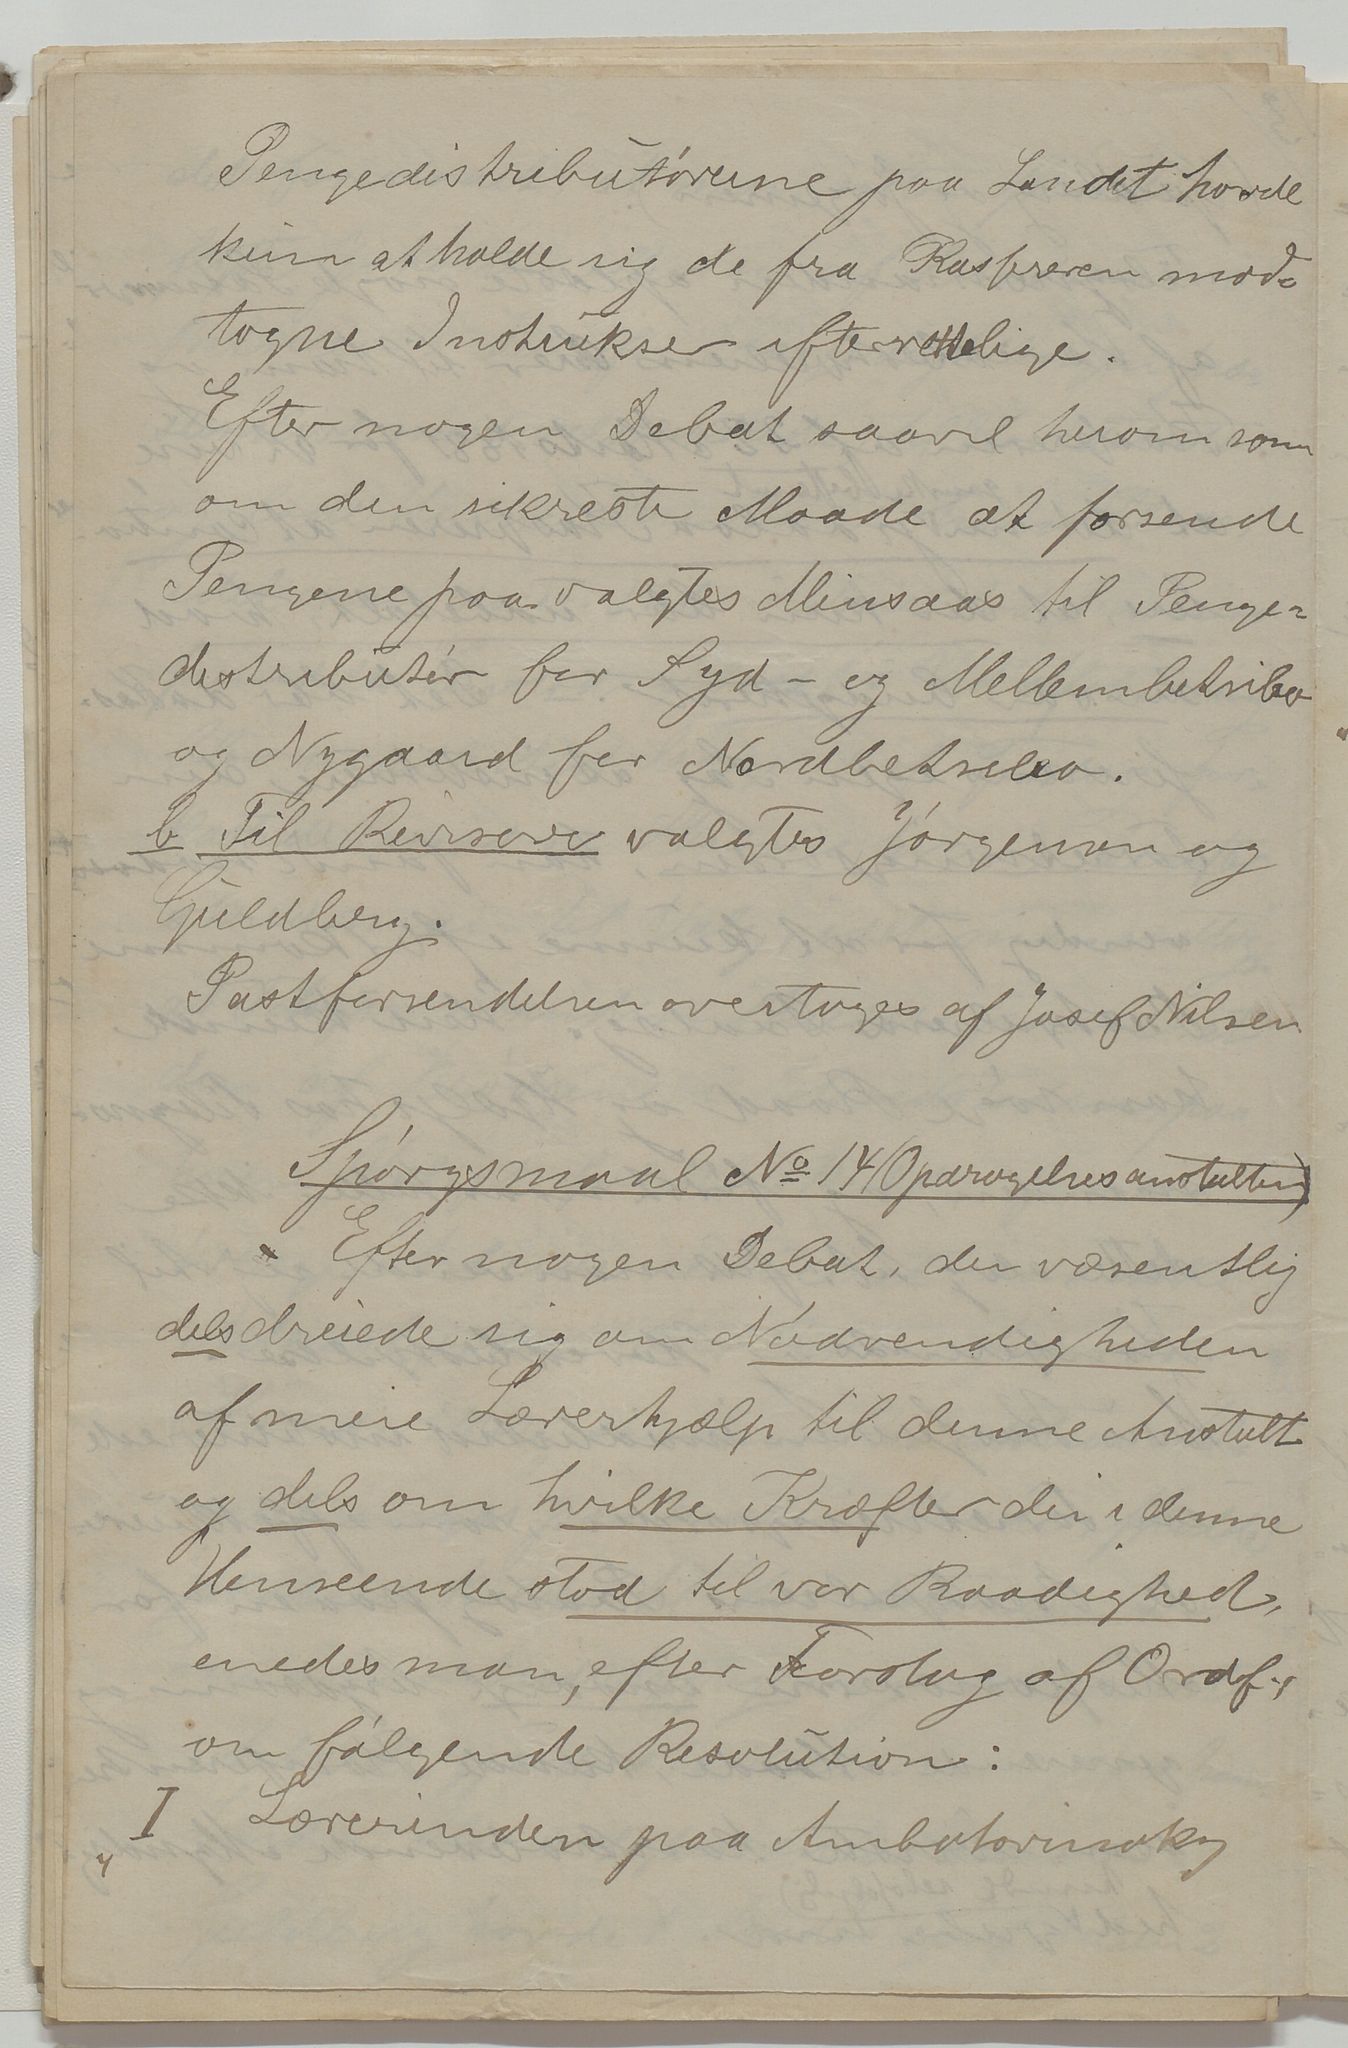 Pengedistributørerne paa Landet havde
kun at holde sig de fra Kasereren mod-
tagne Instrukser efterrettelige.
Efter nogen Debat saavel herom som
om den sikreste Maade at forsende
Pengene paa valgtes Minsaas til Penge-
distributør for Syd- og Mellembetsileo
og Nygaard for Nordbetsileo.
b Til Revisorer valgtes Jørgensen og
Guldberg.
Postforsendelsen overtoges af Josef Nilsen
Spørgsmaal No 14 (Opdragelsesanstalten)
Efter nogen Debat, der væsentlig
dels dreiede sig om Nødvendigheden
af mere Lærerhjælp til denne Anstalt
og dels om hvilke Kræfter der i denne
Henseende stod til vor Raadighed,
enedes man, efter Forslag af Ordf.,
om følgende Resolution:
I Lærerinden paa Ambatovinaky